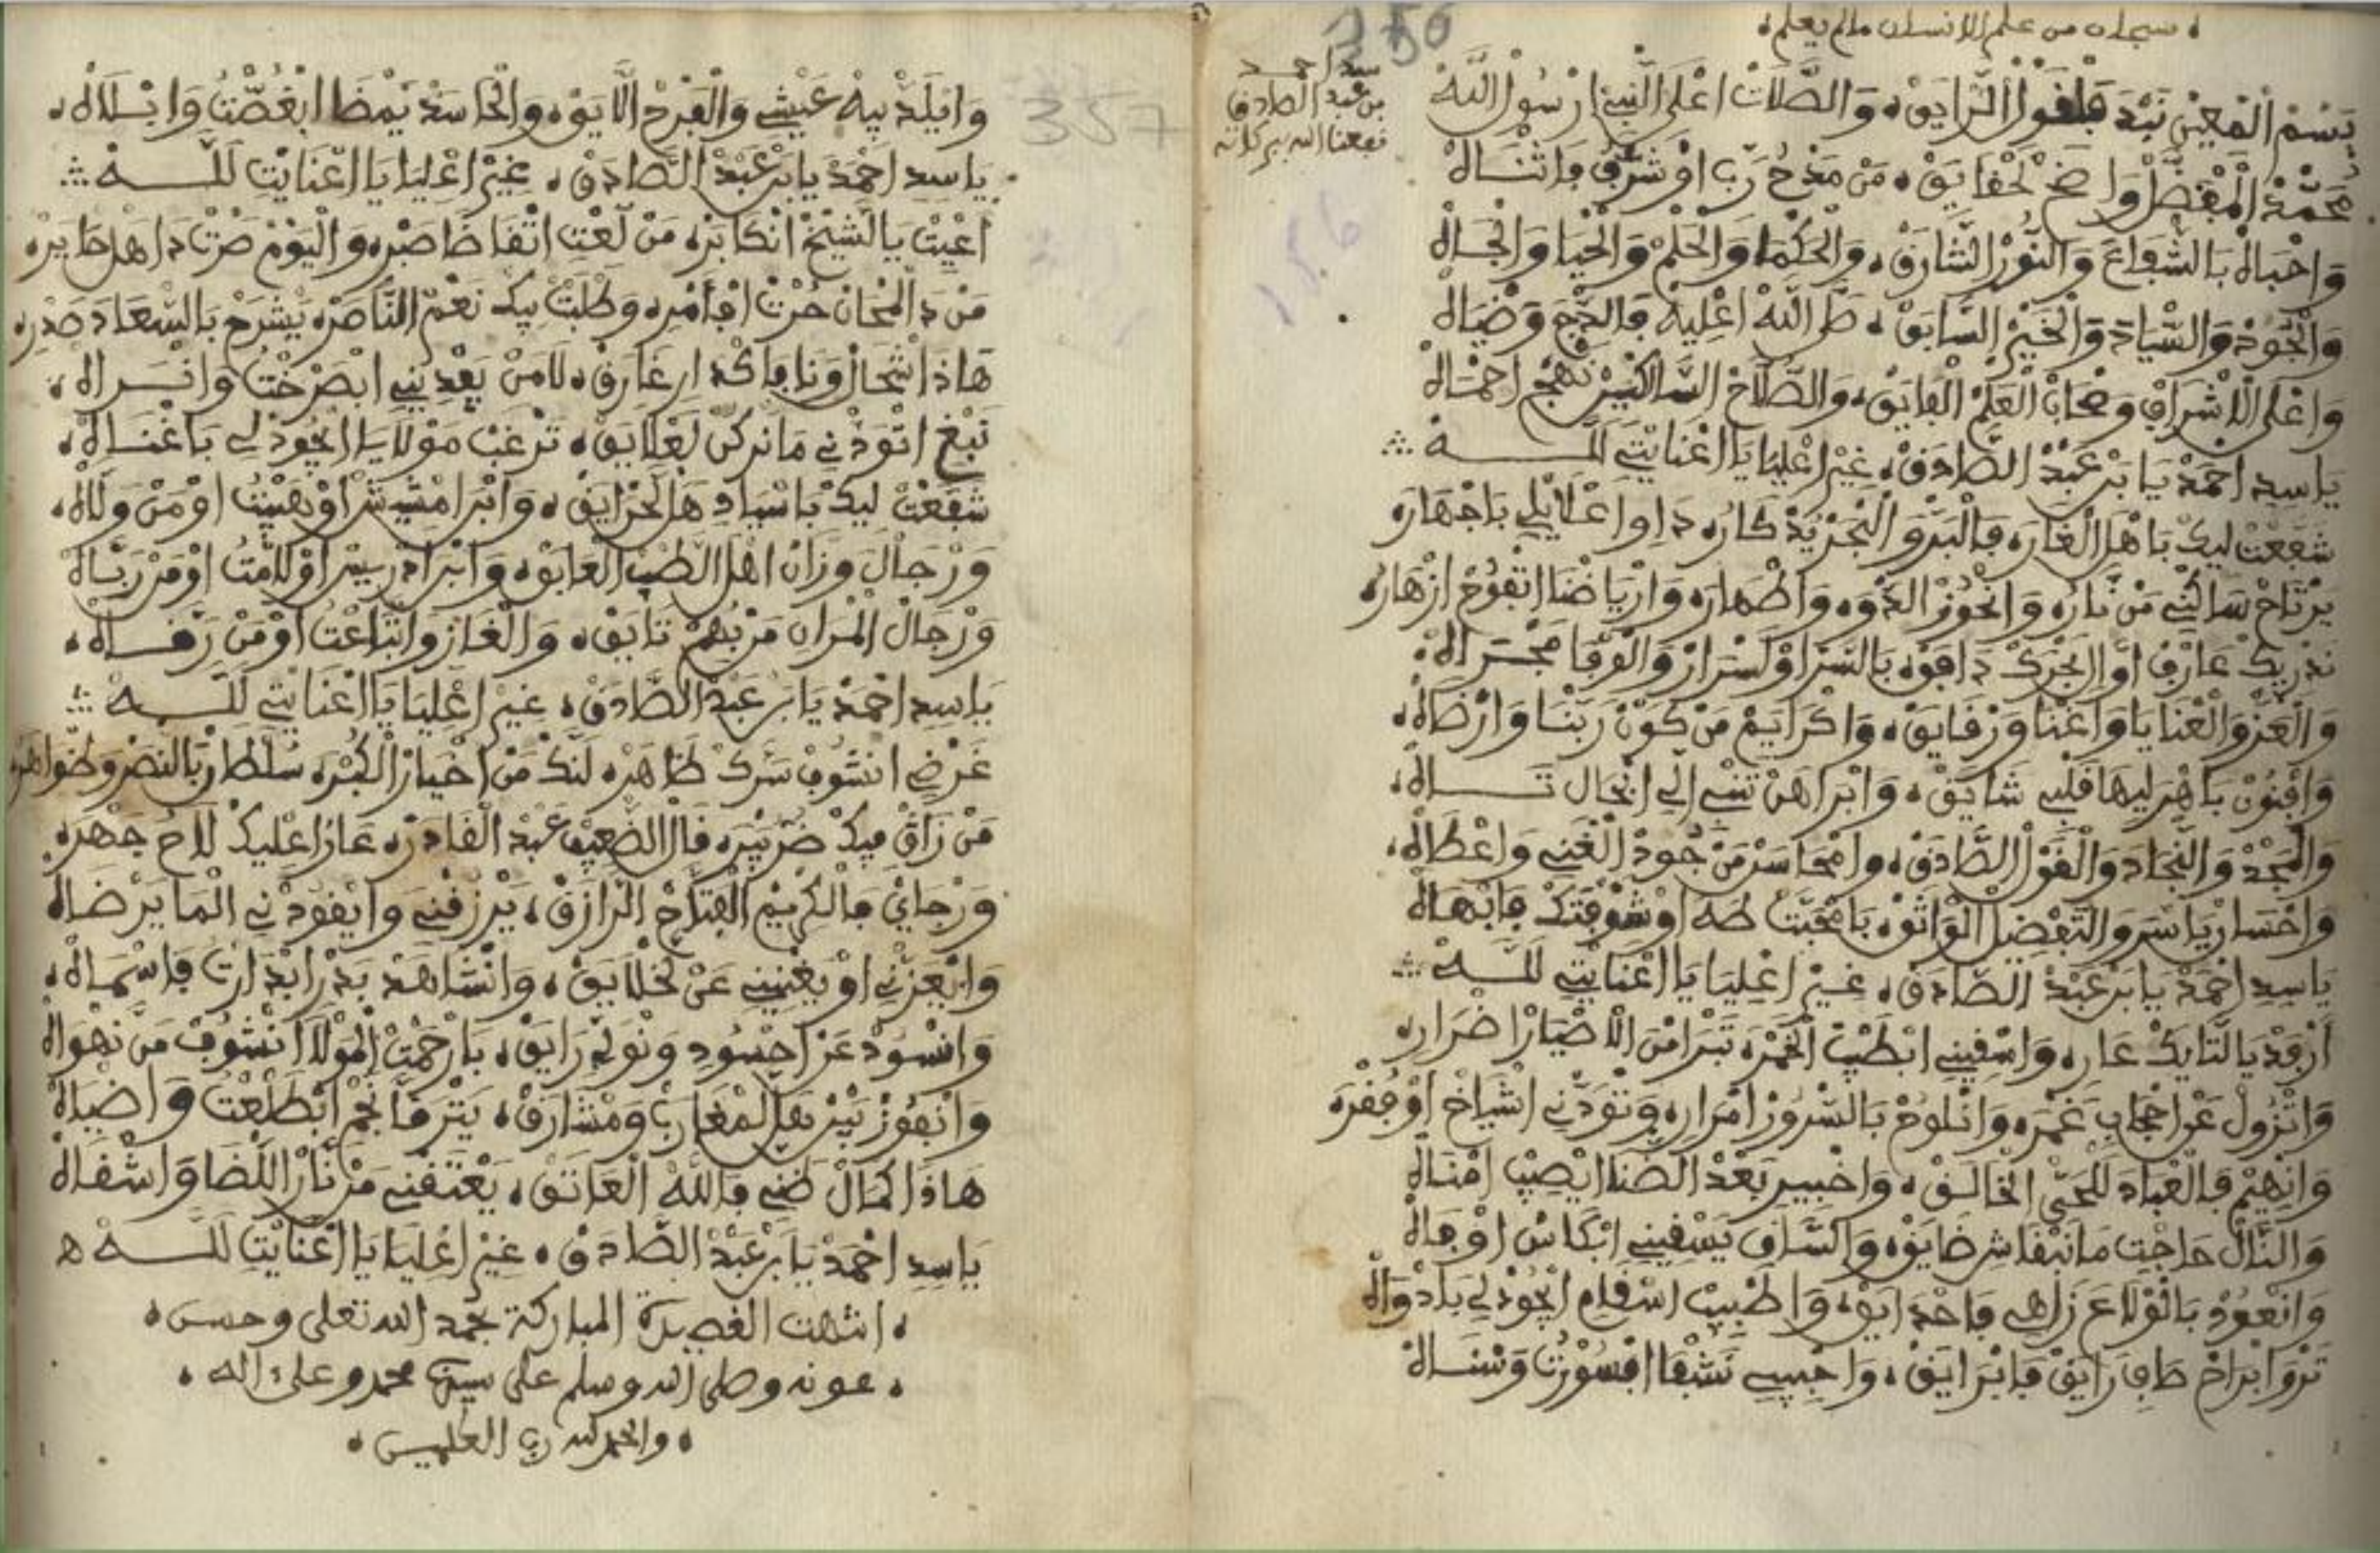 سبحان من علم الانسان مالم يعلم
156
سيد احمد
بن عبد الصادق
نفعنا الله ببركاته
بَسْمْ الْمُعِينْ نَبْدَ فَلْقَوْلْ الرَّايَقْ، وَالصَّلَاتْ اعْلَى النّْبِي ارْسُولْ اللَّهْ
مُحَمَّدْ الْمْفَضَّلْ وَاضَحْ لَحْقَايَقْ، مَنْ مَدْحُ رَبِّ اوْ شَرّْفُ وَاثْنَاهْ
وَاحْبَاهْ بَالشّْفَاعَ وَالنُّورْ الشَّارَقْ، وَالْحَكْمَا وَالْحَلْمْ وَالْحْيَا وَالْجَاهْ
وَالْجُودْ وَالسّْيَادَ وَالْخَيْرْ السَّابَقْ، صَلَّ اللَّهْ اعْلِيهْ فَالدّْجَ وَضْيَاهْ
وَاعْلَى الْاشْرَافْ وَصْحَابْ الْعَلْمْ الْفَايَقْ، وَالصُّلَّاحْ السَّالْكِينْ نَهْجْ احْمَاهْ
يَاسِدِ احْمَدْ يَا بَنْ عَبْدْ الصَّادَقْ، غِيرْ اعْلِيَا يَا اعْنَايْتِي لَلَّهْ
شَفَعْتْ لِيكْ بَاهْلْ الْغَارَه فَالْبَرّْ وَالْبْحَرْ يَدْكَارُه دَاوِ اعْلَايْلِي بَاجْهَارَه
يَرْتَاحْ سَاكْنِي مَنْ نَارُه وَانْحُوزْ الدّْوَه وَاطْهَارَه وَارْيَاضْنَا اتْفُوحْ ازْهَارُه
نَدْرِيكْ عَارَفْ اوَّالْحَرْكْ دَافَقْ بَالسَّرّْ اوْلَسْرَارْ وَالْفَرْقَا مَجْرَاهْ
وَالْعَزّْ وَالْعْنَايَا وَاغْنَا وَرْقَايَقْ، وَاكْرَايَمْ مَنْ كَوْنْ رَبّْنَا وَارْضَاهْ
وَافْنُونْ بَاهْرَ لِيهَا قَلْبِي شَايَقْ، وَابْرَاهَنْ تَنْسِي الِّي انْحَالْ تَاهْ
وَالْمَجْدْ وَالنّْجَادَ وَالْقَوْلْ الصَّادَقْ، وامْحَاسَنْ مَنْ جُودْ الْغْنِي وَاعْطَاهْ
وَاحْسَانْ يَاسَرْ وَالتَّفْضِيلْ الْوَاثَقْ، بَامْحَبّْتْ طَهَ اوْ شَوْقْتَكْ فَابْهَاهْ
يَاسِدِ احْمَدْ يَا بَنْ عَبْدْ الصَّادَقْ، غِيرْ اعْلِيَا يَا اعْنَايْتِي لَلَّهْ
ارْفَدْ يَا لتَّايَكْ عَارِه، وَاسْقِينِي ابْطِيبْ الْخَمْرَه تَبْرَا مْنْ الْاضْيَارْ اضْرَارِه
وَاتْزُولْ عَنْ احْجَابِي غَمْرَه، وَاتْلُوحْ بَالسّْرُورْ امْرَارِه وَتْوَدّْنِي اشْيَاخْ اوْ فُقْرَه
وَانْهِيمْ فَالْعْبَادَ لَلْحَيّْ الْخَالَقْ، وَاحْبِيبِ بَعْدْ الضّْنَا ايْصِيبْ امْنَاهْ
وَالنَّالْ حَاجْتِ مَانَبْقَاشْ ضَايَقْ، وَالسَّاقِ يَسْقِينِي ابْكَاسْ اوْفَاهْ
وَانْعُودْ بَالْوْلَاعَ زَاهِي فَاحْدَايَقْ، وَاطْبِيبْ اسْقَامِ ايْجُودْ لِي بَادْوَاهْ
نَزْوَ ابْرَاحْ صَافِ رَايَقْ فَابْرَايَقْ، وَاحْبِيبِي نَشْفَا ابْسُورْتُ وَسْنَاهْ
357
وَايْلَدّْ بِيهْ عَيْشِي وَالْفَرْحْ الْايَقْ، وَالْحَاسَدْ يَمْضَا ابْغُصّْتُ وَابْلَاهْ
يَاسِدِ احْمَدْ يَا بَنْ عَبْدْ الصَّادَقْ، غِيرْ اعْلِيَا يَا اعْنَايْتِ لَلَّهْ
اعْيِيتْ يَا لشِّيخْ انْكَابَرْه مَنْ لَعْتِ اتْقَاضَا صَبْرِه وَالْيَوْمْ صَرْتْ دَاهَلْ حَايَرْه
مَنْ دَالْمْحَانْ حُرْتْ افَامْرِه وَطْلَبْتْ بِيكْ نَعْمْ النَّاصَرْه يَشْرَحْ بَالسّْعَادَ صَدْرِه
هَاذَ اشْحَالْ وَنَا فَاكْدَارِ غَارَقْ، لَامَنْ يَفْدِينِي ابْصَرْخْتُ وَانْرَاهْ
نَبْغِ اتْوَدّْنِي مَانَرْكَنْ لَعْلَايَقْ، تَرْغَبْ مَوْلَايَا ايْجُودْ لِي بَاغْنَاهْ
شَفَعْتْ لِيكْ بَاسْيَادِ هَلْ لَحْزَايَقْ، وَابْنْ امْشِيشْ اوْ بَهِيتُ اوْ مَنْ وَلَّاهْ
وَرْجَالْ وَزَّانْ اهْلْ الطّبّْ الْعَابَقْ، وَابْنْ ادْرِيسْ اوْلَامّْتُ اوْ مَنْ رَبَّاهْ
وَرْجَالْ الْمْرَانِ مَنْ بُهُمْ تَايَقْ، وَالْغَازِ وَاتْبَاعْتُ اوْ مَنْ رَقَّاهْ
يَاسِدِ احْمَدْ يَا بَنْ عَبْدْ الصَّادَقْ، غِيرْ اعْلِيَا يَا اعْنَايْتِي لَلَّهْ
غَرْضِي انْشُوفْ سَرَّكْ ظَاهَرْه لَنَّكْ مَنْ اخْيَارْ الْكُبْرَه سُلْطَانْ بَالنّْصَرْ وَظْوَاهَرْه
مَنْ زَاڭْ فِيكْ ضَرّْ نِيرَه قَالْ الضّْعِيفْ عَبْدْ الْقَادَرْه عَارَ اعْلِيكْ لَاحْ جَهْرَه
وَرْجَايْ فَالْكْرِيمْ الْفَتَّاحْ الرَّازَقْ، يَرْزَقْنِي وَايْقُودْنِي الْمَا يَرْضَاهْ
وَايْعَزّْنِي اوْ يَغْنِينِي عَنْ لَخْلَايَقْ، وَانْشَاهَدْ بَدْرْ ابْدَاتْ فَاسْمَاهْ
وَانْسُودْ عَنْ احْسُودِ وَنْوَلِّي رَايَقْ، بَارْحَمْتْ الْمَوْلَا انْشُوفْ مَنْ نَهْوَاهْ
وَانْفُوزْ بَيْنْ هَلْ الْمْغَارَبْ وَمْشَارَقْ، يَتْرَقَّا نَجْمْ ابْطَلْعْتُ وَاضْيَاهْ
هَاذَا كْمَالْ ضَنِّي فَاللَّهْ الْعَاتَقْ، يَعْتَقْنِي مَنْ نَارْ اللّْضَا وَاشْقَاهْ
يَاسِدِ احْمَدْ يَا بَنْ عَبْدْ الصَّادَقْ، غِيرْ اعْلِيَا يَا اعْنَايْتِ لَلَّهْ
انتهت القصيدة المباركة بحمد الله تعلى وحسن
عونه وصلى الله وسلم على سيدنا محمد وعلى ءاله
والحمد لله رب العلمين